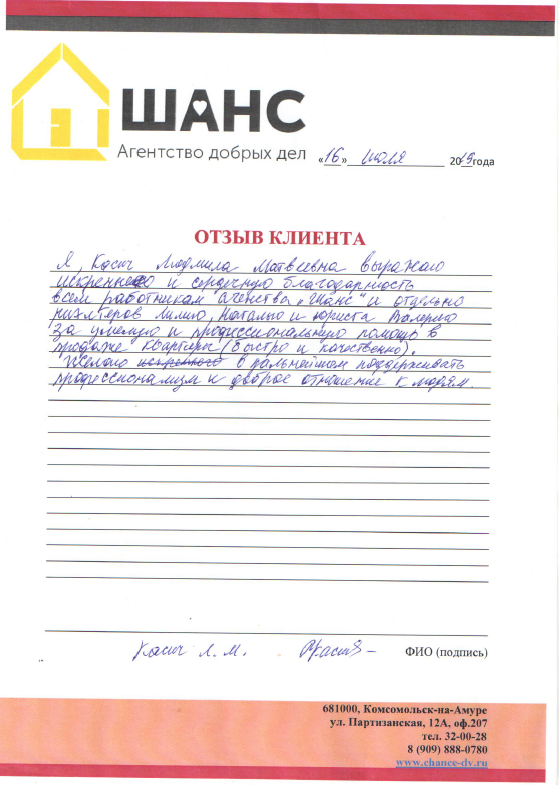 ШАНС
Агентство добрых дел
«16» июля 2019года
ОТЗЫВ КЛИЕНТА
Я, Касич Людмила Матвеевна выражаю
искреннею и сердечную благодарность
всем работникам агенства „Шанс" и отдельно
риэлтеров Лилию, Наталью и юриста Валерию
за умелую и профессиональную помощь в
продаже квартиры (быстро и качественно).
Желаю искреннего в дальнейшем поддерживать
профессионализм и доброе отношение к людям.
Касич Л.М. ФИО (подпись)
681000, Комсомольск-на-Амуре
ул. Партизанская, 12А, оф.207
тел. 32-00-28
8 (909) 888-0780
www.chance-dv.ru